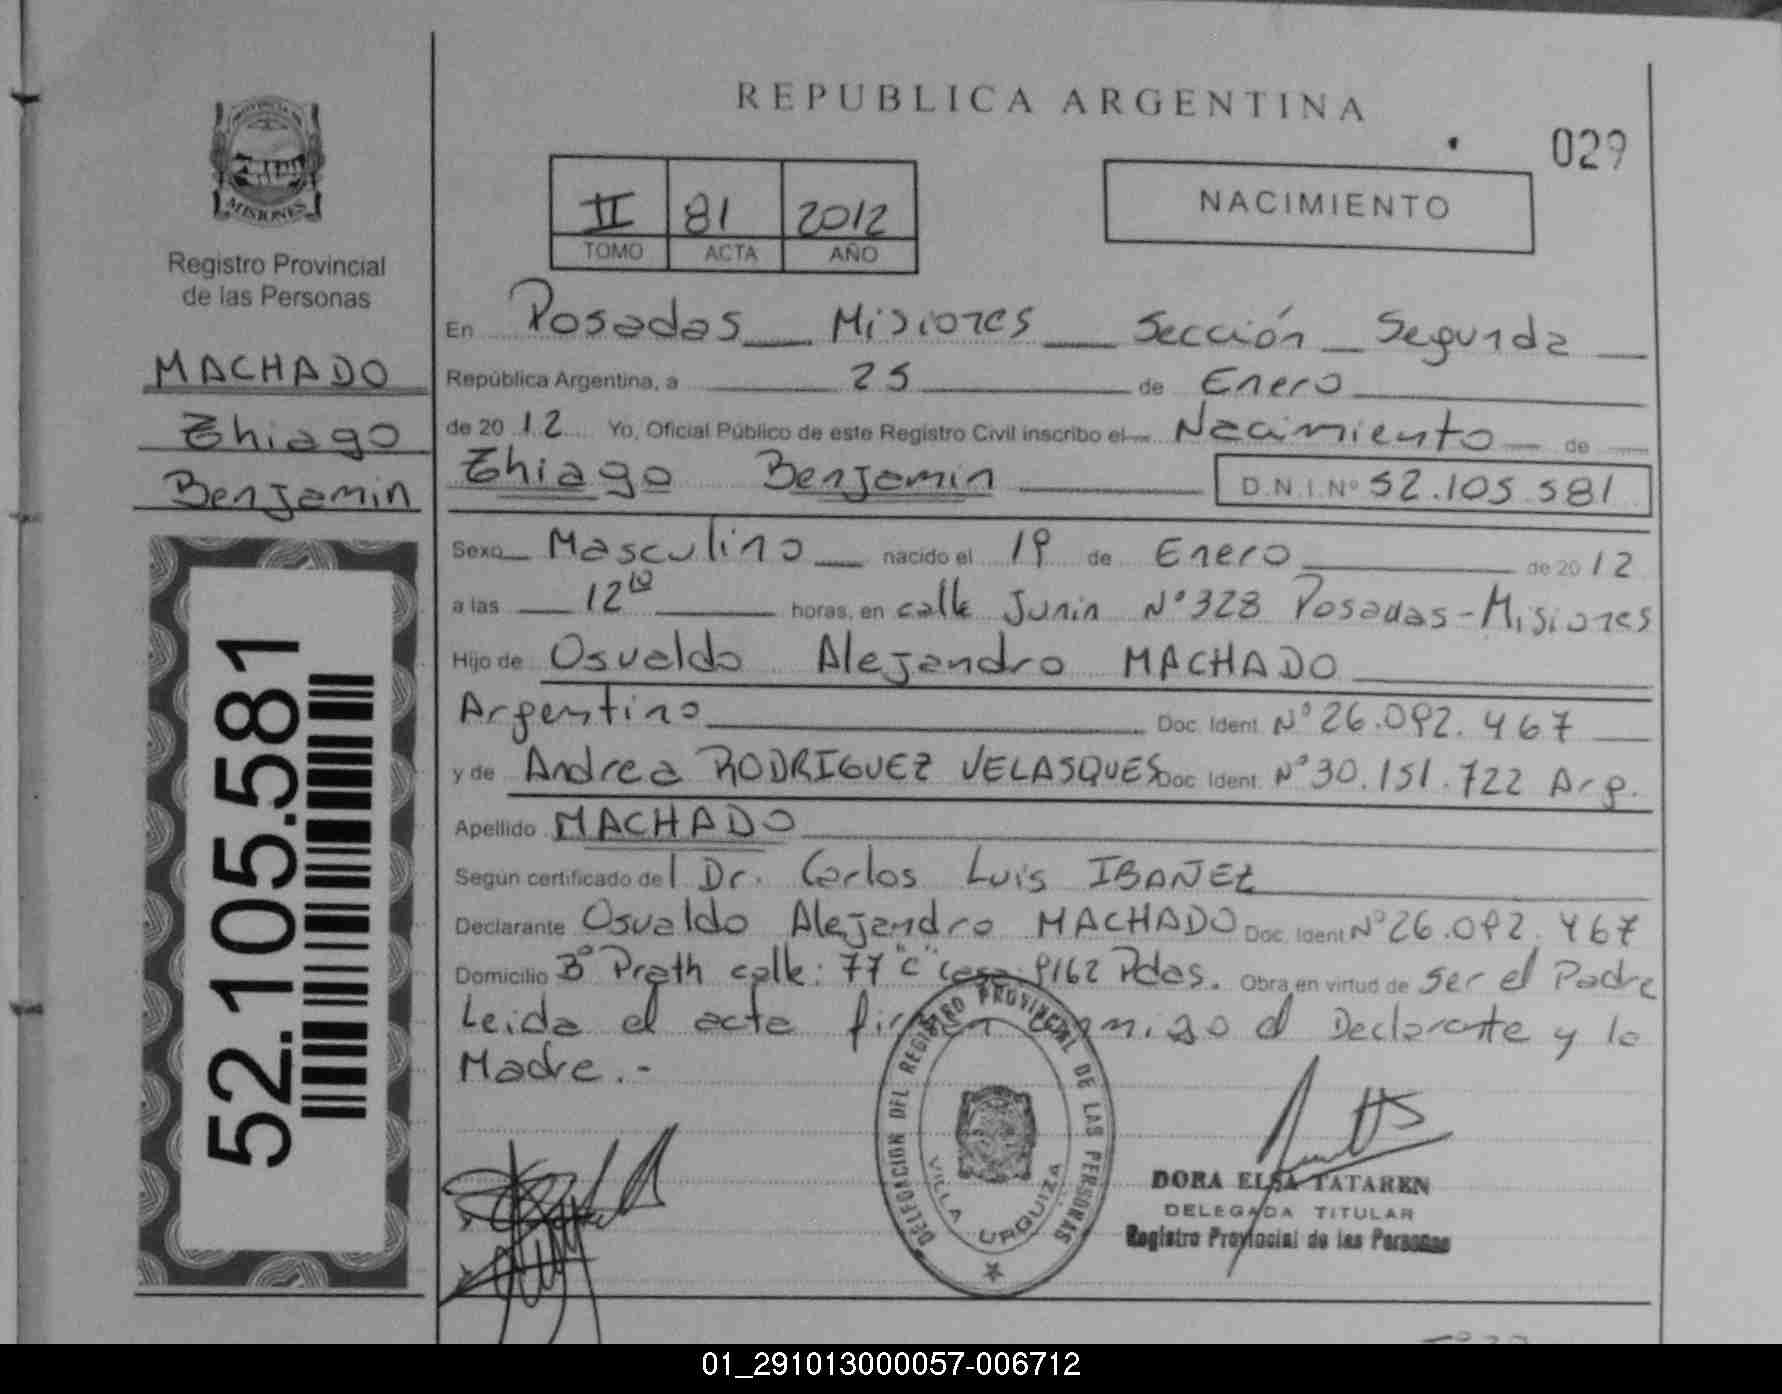 REPUBLICA ARGENTINA
029
II 81 2012
TOMO ACTA AÑO
NACIMIENTO
PROVINCIA DE
MISIONES
Registro Provincial
de las Personas
MACHADO
Thiago
Benjamin
52.105.581
En Posadas Misiones Sección Segunda
República Argentina, a 25 de Enero
de 2012 Yo, Oficial Público de este Registro Civil inscribo el Nacimiento de
Thiago Benjamin D.N.I.Nº 52.105.581
Sexo Masculino nacido el 19 de Enero de 2012
a las 12 horas, en calle Junin Nº 328 Posadas-Misiones
Hijo de Osvaldo Alejandro MACHADO
Argentino Doc. Ident. Nº 26.092.467
y de Andrea RODRIGUEZ VELASQUES Doc. Ident. Nº 30.151.722 Arg.
Apellido MACHADO
Según certificado del Dr. Carlos Luis IBAÑEZ
Declarante Osvaldo Alejandro MACHADO Doc. Ident Nº 26.092.467
Domicilio Bº Prath calle: 77 "C" casa: 9162 Pdas. Obra en virtud de ser el Padre
Leida el acta firman conmigo el Declarante y la
Madre.-
DELEGACION DEL REGISTRO PROVINCIAL DE LAS PERSONAS
VILLA URQUIZA
DORA ELSA TATAREN
DELEGADA TITULAR
Registro Provincial de las Personas
01_291013000057-006712